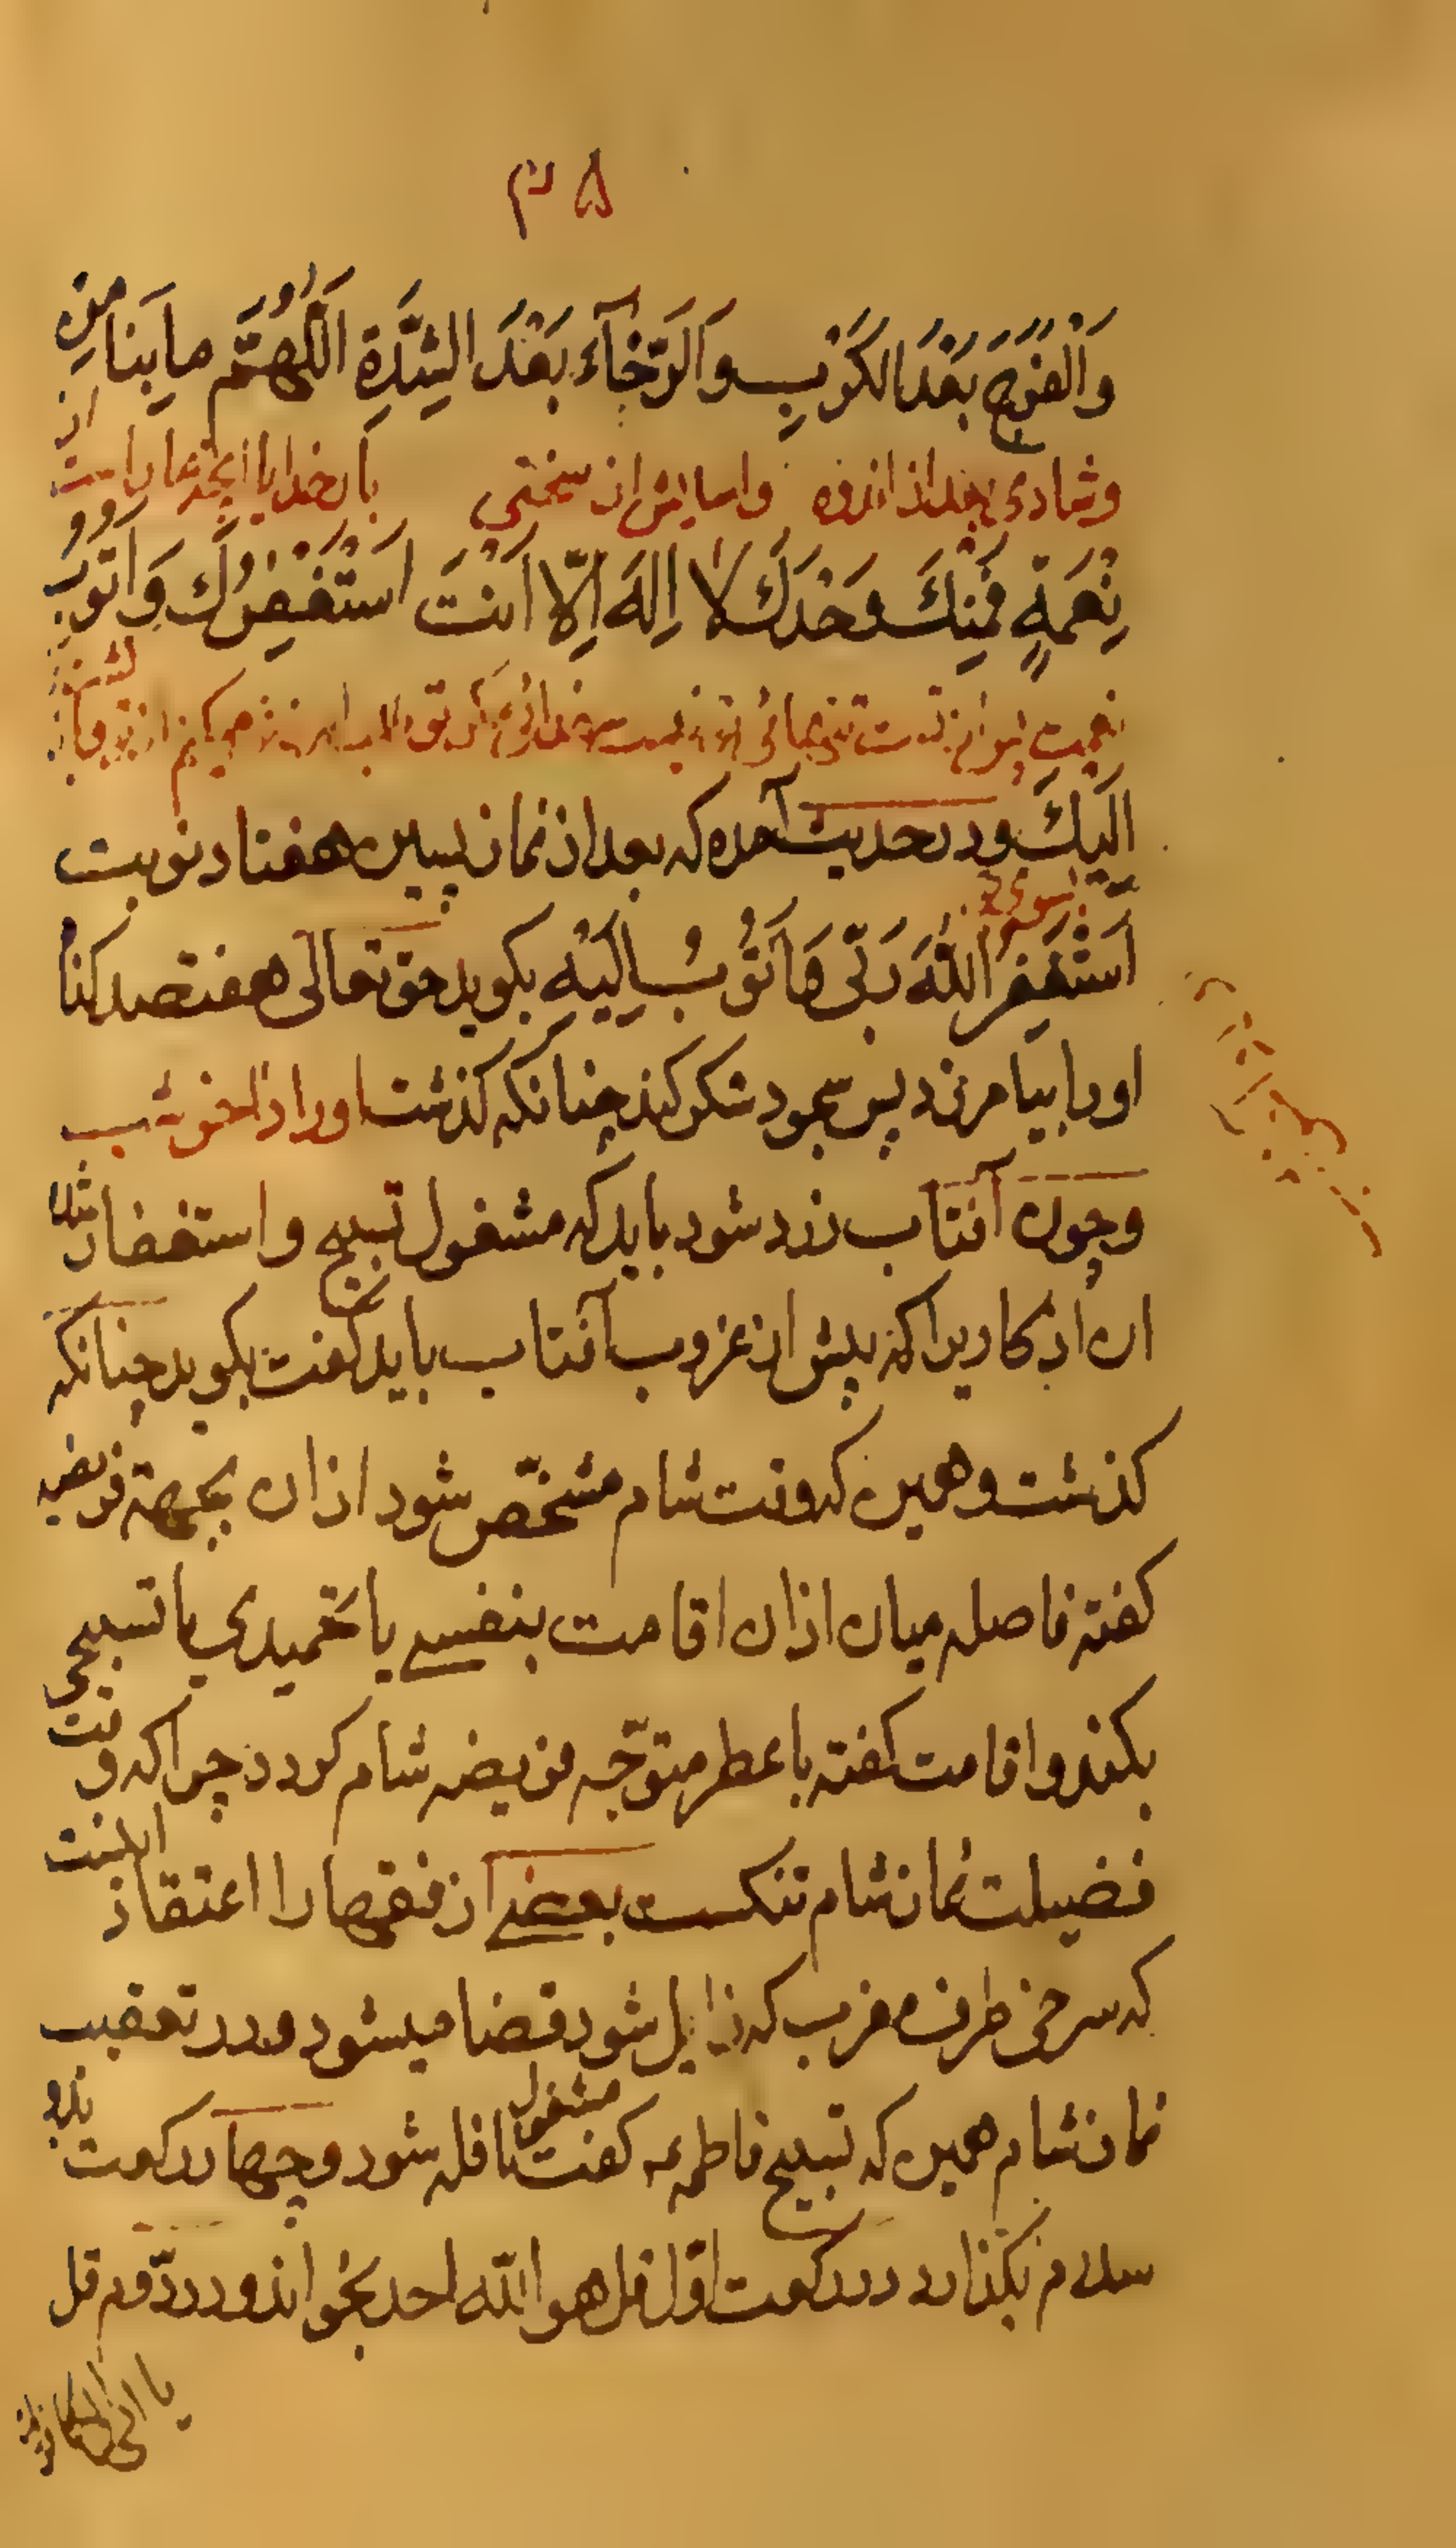 ۵۸
وَالْفَرَجِ بَعْدَ الْكَرْبِ وَالرَّخَآءِ بَعْدَ الشِّدَّةِ اَللّٰهُمَّ مابِنا مِنْ
وشادی بعد از اندوه واسایش از سختی بارخدایا انچه مارا است از
نِعْمَةٍ فَمِنْكَ وَحْدَكَ لا اِلهَ اِلّا اَنْتَ اَسْتَغْفِرُكَ وَاَتُوبُ
نعمت پس از تست تنهائی تو نیست خدائی مگر تو طلب امرزش میکنم از تو
اِلَيْكَ ودر حدیث آمده که بعد از نماز پسین هفتاد نوبت
بسوی تو
اَسْتَغْفِرُ اللّٰهَ رَبّی وَاَتُوبُ اِلَيْهِ بکوید حق تعالی هفتصد کناه
اورا بیامرزد پس سجود شکر کند چنانکه کذشت اوراد اخر شب
وچون آفتاب زرد شود باید که مشغول تسبیح و استغفار شده
ان اذکاریرا که پیش از غروب آفتاب باید کفت بکوید چنانکه
کذشت وهمین که وقت شام مشخّص شود اذان بجهة فریضه
کفته فاصله میان اذان اقامت بنفسی یا تحمیدی یا تسبیحی
بکند واقامت کفته با عطر متوّجه فریضه شام کردد چرا که وقت
فضیلت نماز شام تنکست بعضی از فقها را اعتقاد اینست
که سرخی طرف مغرب که زایل شود قضا میشود ودر تعقیب
نماز شام همین که تسبیح فاطمه ع کفت مشغول نافله شود وچهار رکعت بدو
سلام بکذارد در رکعت اوّل قل هو اللّه احد بخواند و در دوّم قل
یا ایها الکافرون